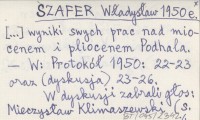 SZAFER Władysław 1950 e.
[...] wyniki swych prac nad mio-
cenem i pliocenem Podhala.
— W: Protokół 1950: 22-23
oraz (dyskusja) 23-26.
W dyskusji zabrali głos:
Mieczysław Klimaszewski, S.